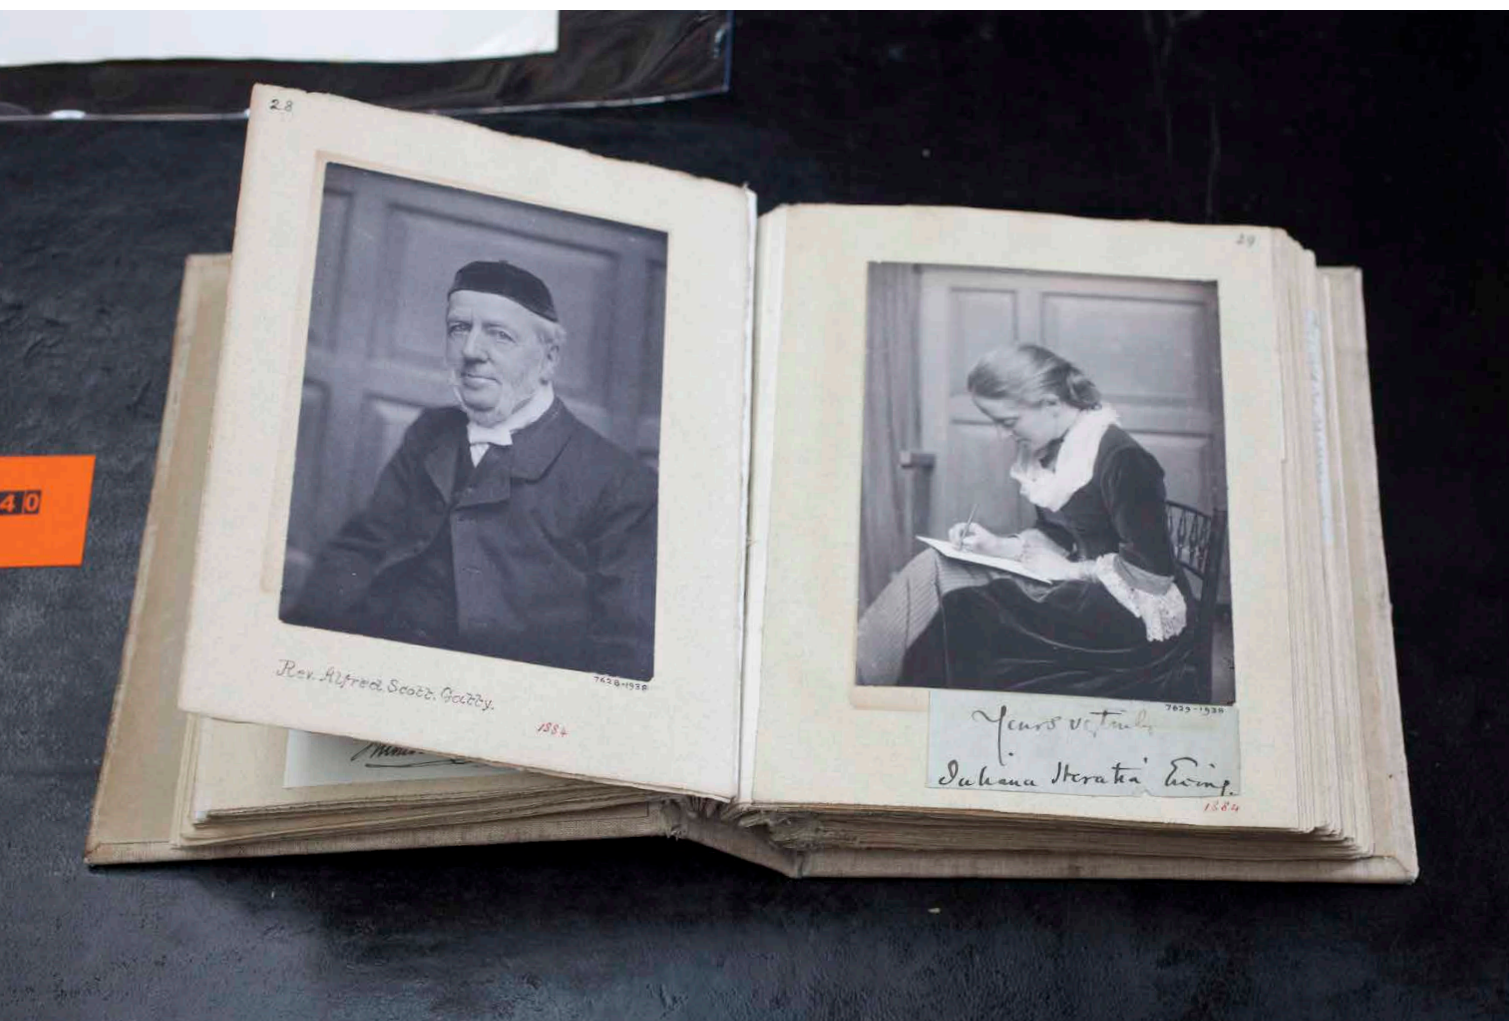 28
Rev. Alfred Scott. Gatty.
7628-1938
1884
40
29
7629-1938
Yours vy truly
Juliana Horatia Ewing.
1884